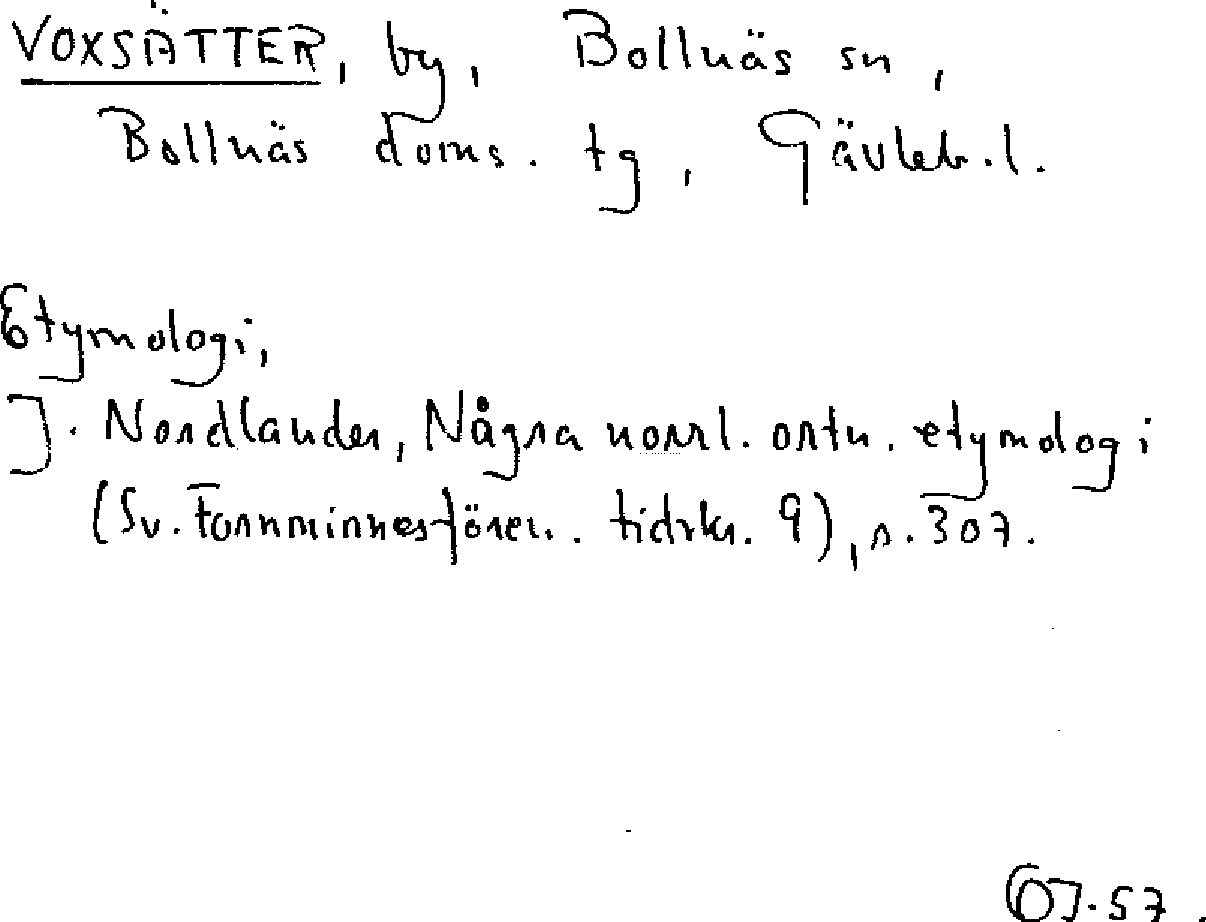 VOXSÄTTER, by, Bollnäs sn,
Bollnäs doms. tg, Gävleb. l.
Etymologi,
J. Nordlander, Några norrl. ortn. etymologi
(Sv. Fornminnesfören. tidskr. 9), s. 307.
OJ. 57.